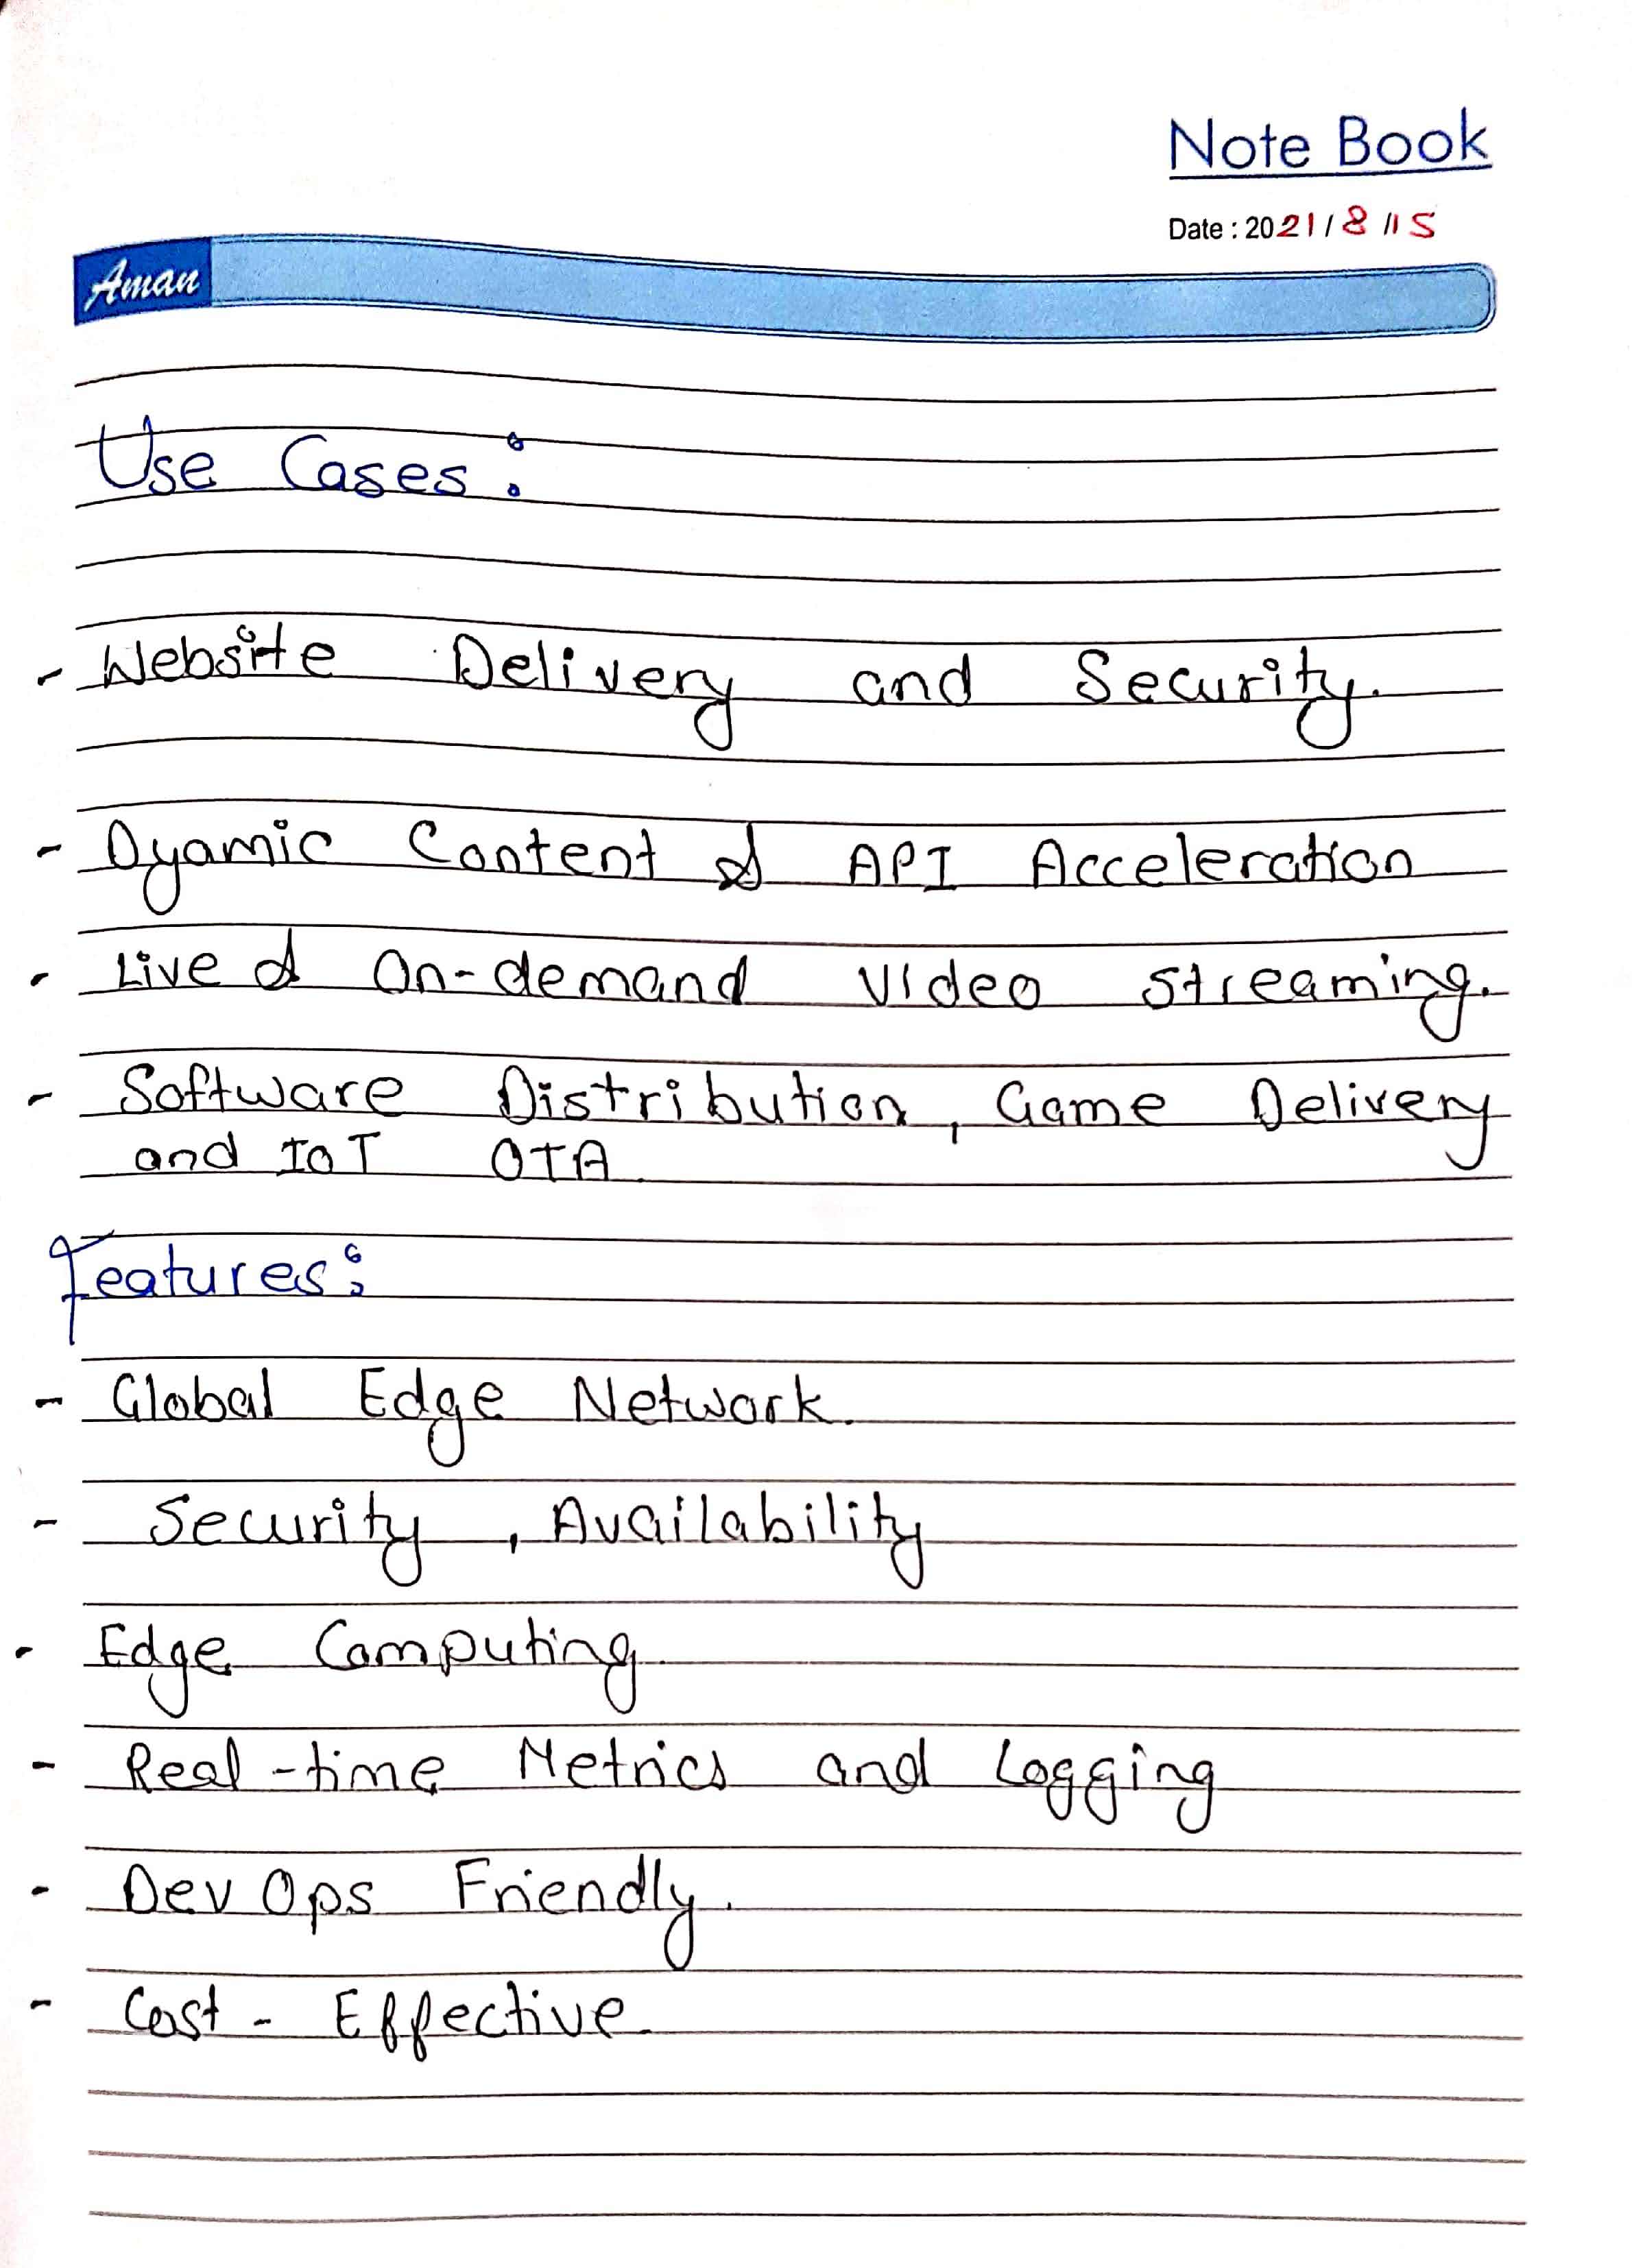 Note Book
Date : 2021/8/15
Aman
Use Cases:
- Website Delivery and Security.
- Dyamic Content & API Acceleration
- Live & On-demand Video streaming.
- Software Distribution, Game Delivery
and IoT OTA
Features:
- Global Edge Network.
- Security, Availability
- Edge Computing
- Real-time Metrics and Logging
- DevOps Friendly.
- Cost-Effective